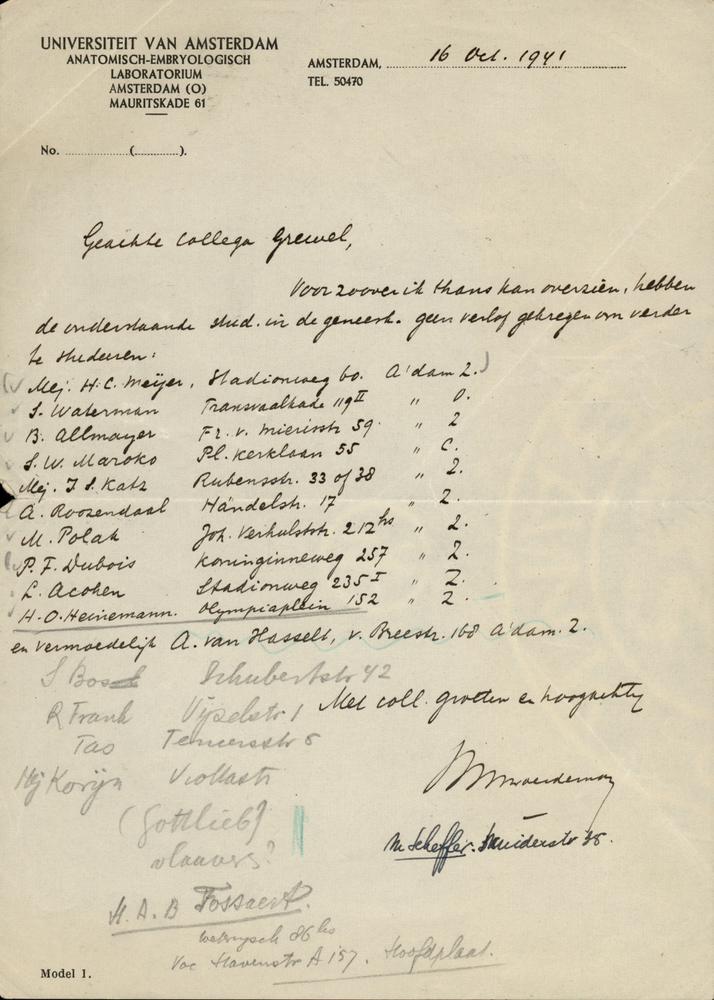 UNIVERSITEIT VAN AMSTERDAM
ANATOMISCH-EMBRYOLOGISCH
LABORATORIUM
AMSTERDAM (O)
MAURITSKADE 61
AMSTERDAM, 16 Oct. 1941
TEL. 50470
No. ............(............).
Geachte collega Grewel,
Voor zoover ik thans kan overzien, hebben
de onderstaande stud. in de geneesk. geen verlof gekregen om verder
te studeeren:
Mej. H.C. Meijer, Stadionweg 60. A'dam Z.
S. Waterman Transvaalkade 119 II " O.
B. Allmayer Fr. v. Mierisstr 59. " Z
S. W. Maroko Pl. Kerklaan 55 " C.
Mej. J. S. Katz Rubensstr. 33 of 38 " Z.
A. Roozendaal Händelstr. 17 " Z.
M. Polak Joh. Verhulststr. 212 hs " Z.
P. F. Dubois Koninginneweg 257 " Z.
L. Acohen Stadionweg 235 I " Z.
H. O. Heinemann. Olympiaplein 152 " Z.
en vermoedelijk A. van Hasselt, v. Breestr. 168 A'dam. Z.
S Bos Schubertstr 42
R Frank Vijzelstr 1
Met coll. groeten en hoogachting
Tas Teniersstr 8
Mej Korijn Viottastr
(Gottlieb?)
M Scheffer.
H. A. B Fossaert.
86 hs
Havenstr A 157. Hoofdplaat.
Model 1.